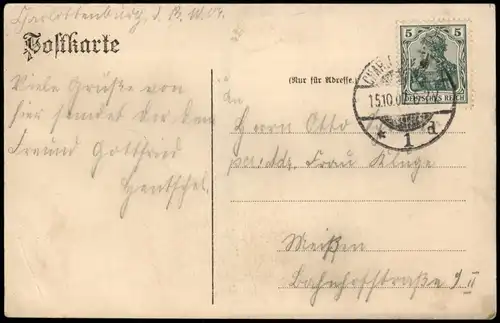 Charlottenburg, d.
Postkarte
Viele Grüße von
hier sendet dir dein
Freund Gottfried
Hentschel.
(Nur für Adresse.)
5 5
DEUTSCHES REICH
CHARL
15.10.0
* 1 d
An
Herrn Otto
per. Adr. Frau Kluge
Meißen
Bahnhofstraße 9 II